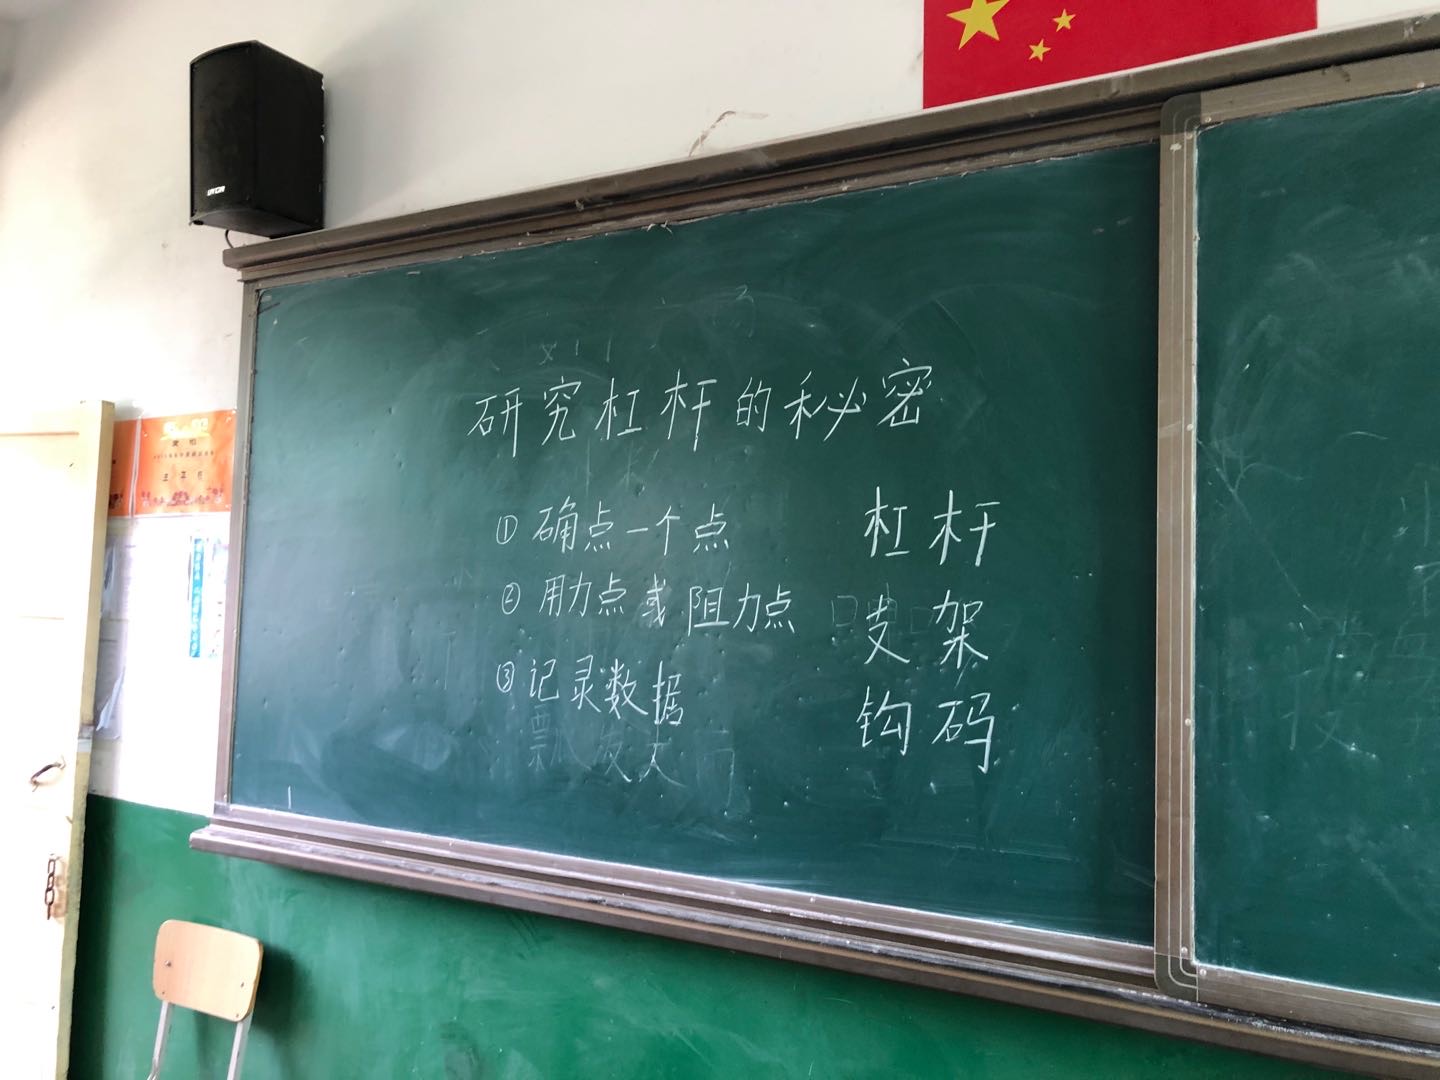 研究杠杆的秘密
①确点一个点
②用力点或阻力点
③记录数据
杠杆
支架
钩码